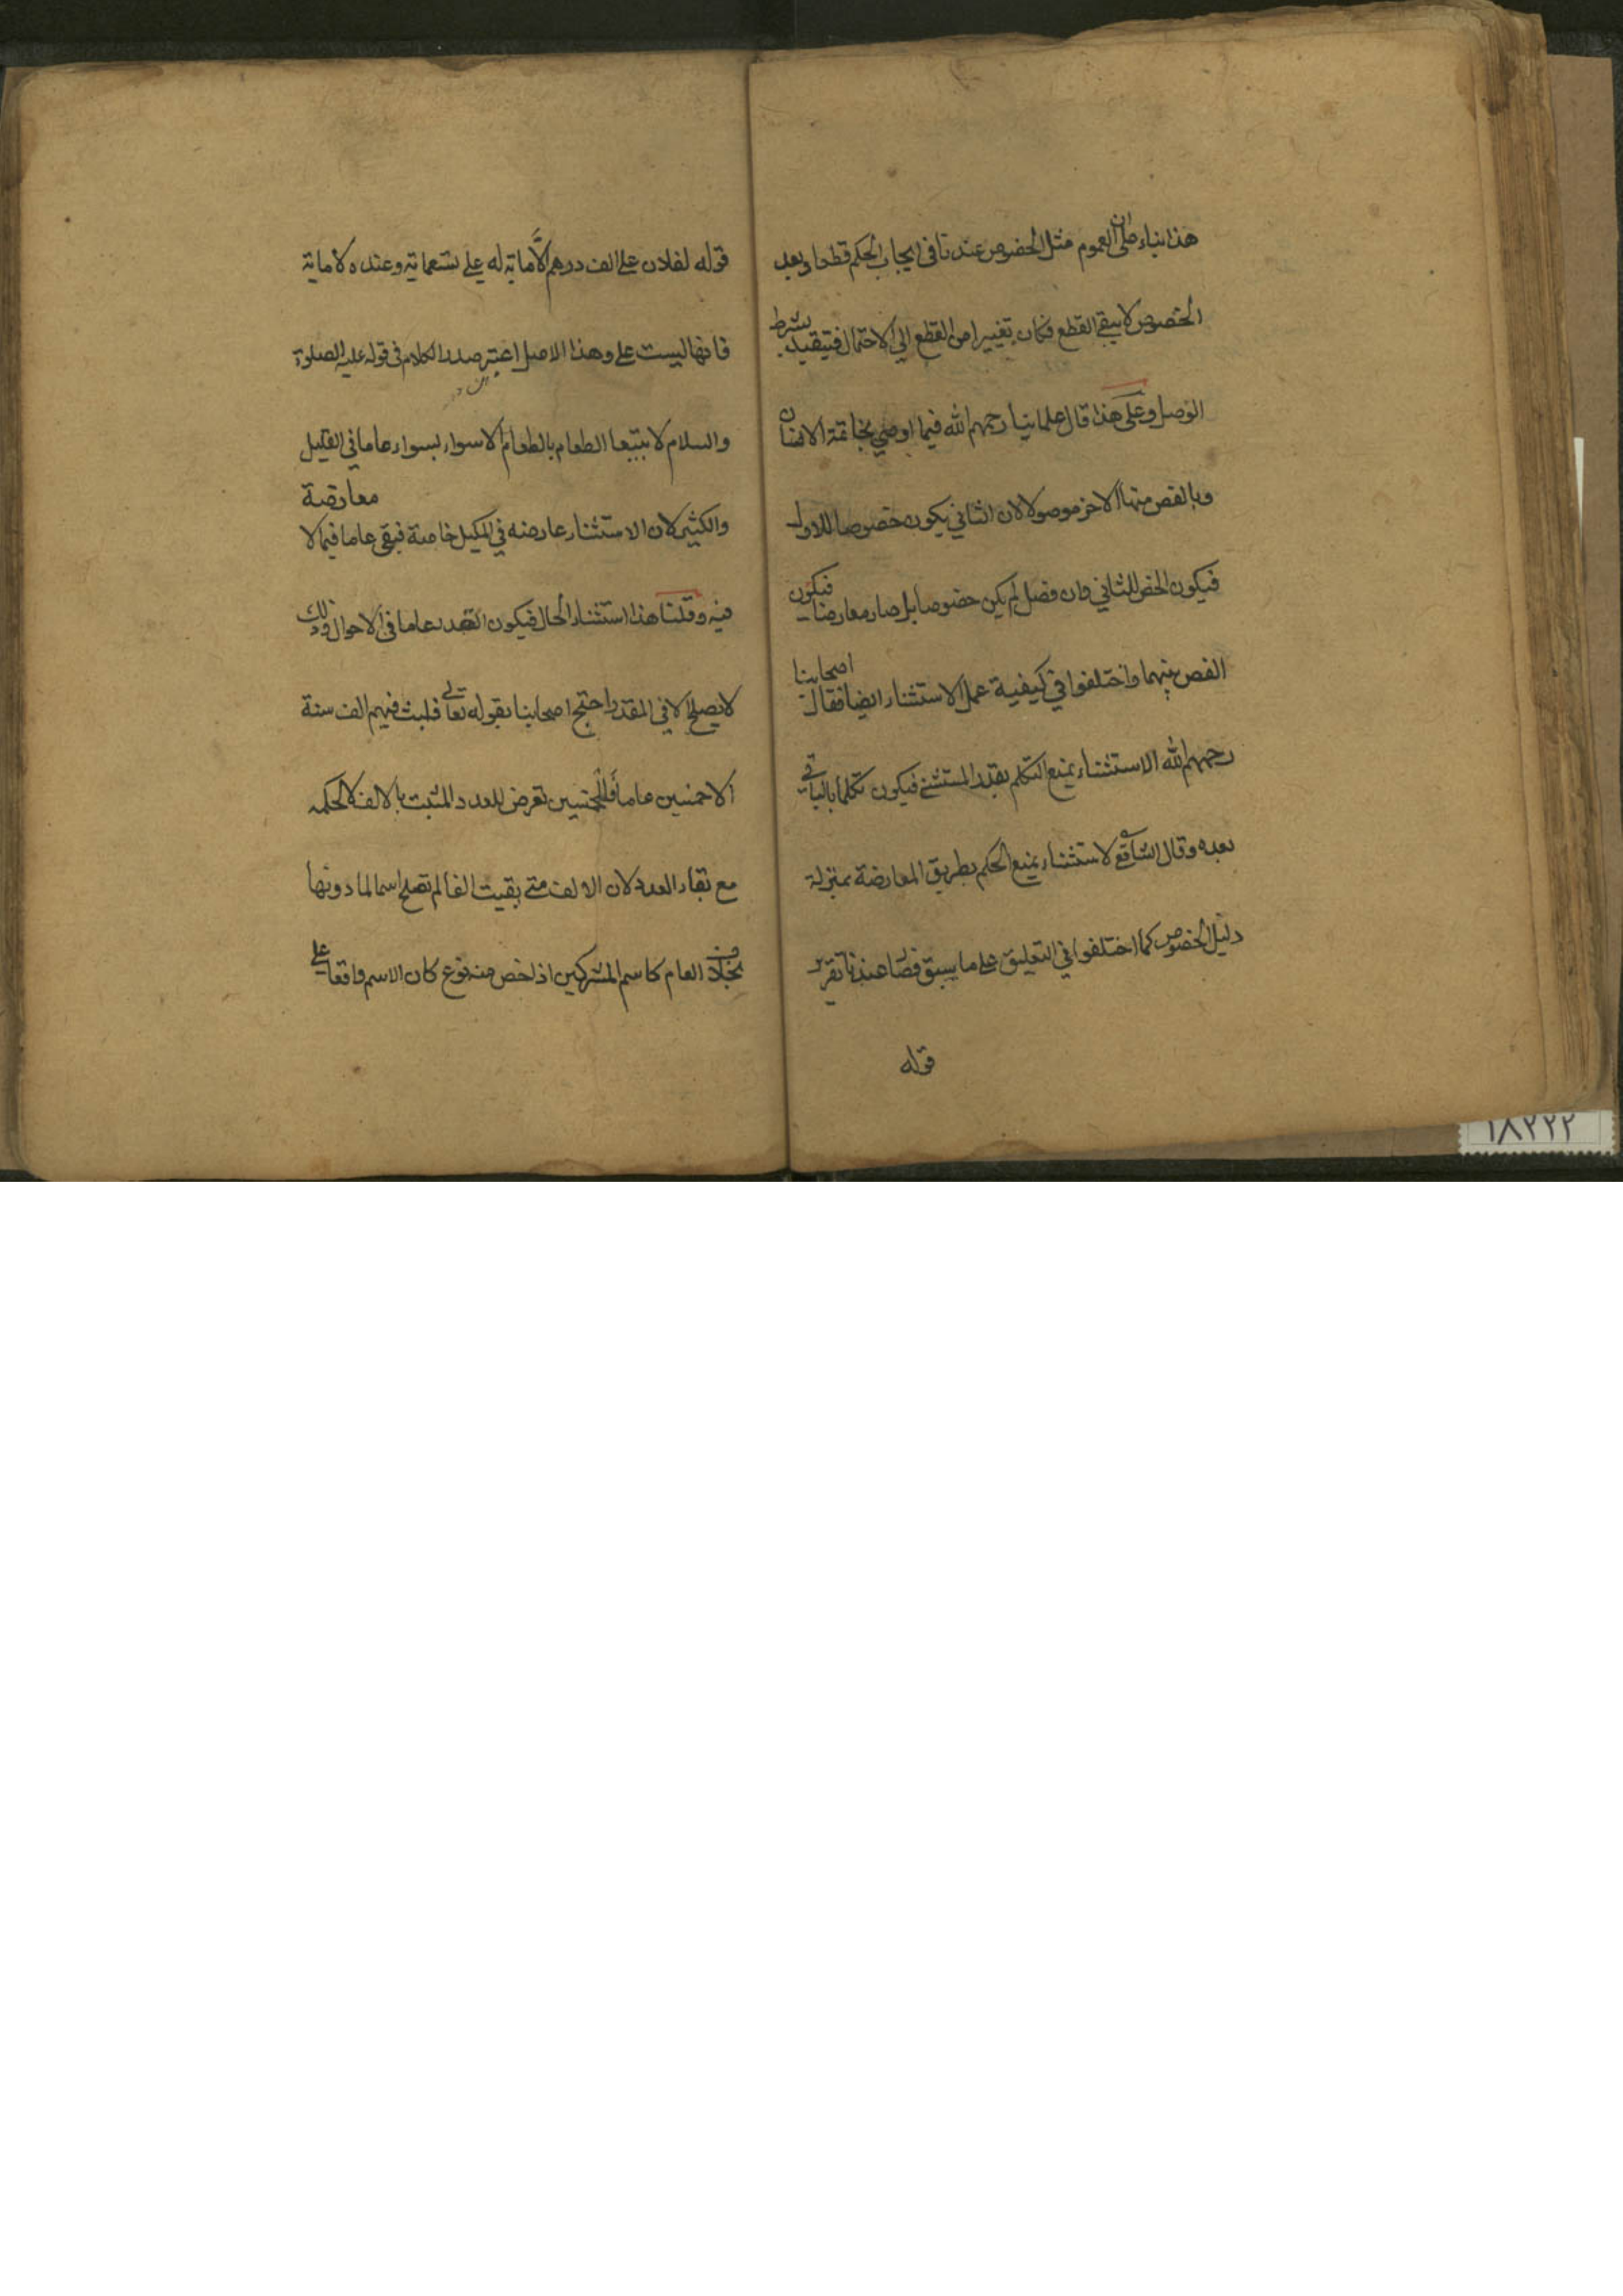 هذا بناء على ان العموم مثل الخصوص عندنا فى ايجاب الحكم قطعا وبعد
الخصوص لا يبقى القطع فكان تغييرا من القطع الى الاحتمال فيتقيد بشرط
الوصل وعلى هذا قال علماينا رحمهم الله فيما اوصي بخاتمة الانسان
وبالفص منها الاخر موصولا لان الثاني يكون خصوصا للاول
فيكون الفص للثاني وان فصل لم يكن خصوصا بل صار معارضا فيكون
الفص بينهما واختلفوا في كيفية عمل الاستثناء ايضا فقال اصحابنا
رحمهم الله الاستثناء يمنع التكلم بقدر المستثنى فيكون تكلما بالباقي
بعده وقال الشافع الاستثناء يمنع الحكم بطريق المعارضة بمنزلة
دليل الخصوص كما اختلفوا في التعليق على ما سبق فصار عندنا تقرير
قوله
قوله لفلان علي الف درهم الا ماية له علي تسعماية وعنده الا ماية
فانها ليست علي وهذا الاصل اعتبر صدر الكلام فى قوله عليه الصلوة
والسلام لا تبيعوا الطعام بالطعام الا سواء بسواء عاما في القليل
والكثير لان الاستثناء عارضه في المكيل خاصة فبقى عاما فيما لا معارضة
فيه وقلنا هذا استثناء الحال فيكون الصدر عاما فى الاحوال وذلك
لا يصلح الا في المقدر واحتج اصحابنا بقوله تعالى فلبث فيهم الف سنة
الا خمسين عاما فالخمسين تعرض للعدد المثبت بالالف لا لحكمه
مع بقاء العدد لان الالف متى بقيت الفا لم تصلح اسما لما دونها
بخلاف العام كاسم المشركين اذ لخص منه نوع كان الاسم واقعا على
١٨٢٢٢